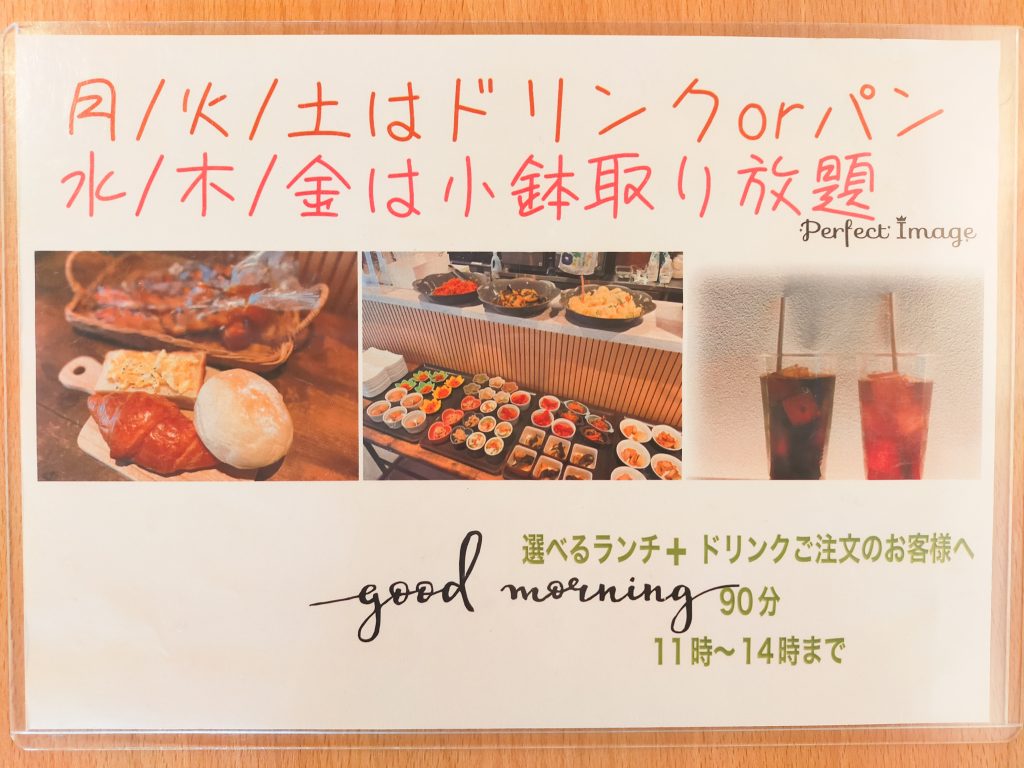 月/火/土はドリンクorパン
水/木/金は小鉢取り放題
Perfect Image
選べるランチ+ ドリンクご注文のお客様へ
good morning
90分
11時〜14時まで